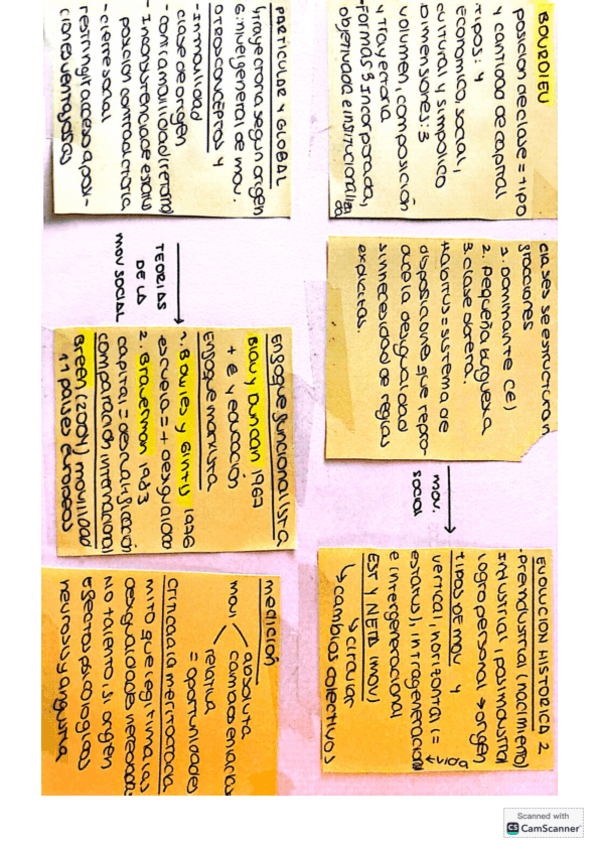 BOURDIEU
posición de clase = tipo
y cantidad de capital
TIPOS: 4
económico, social,
cultural y simbólico
DIMENSIONES: 3
volumen, composición
y trayectoria
-FORMAS 3 incorporada,
objetivada e institucionaliza
da
clases se estructura n
fracciones
1. DOMINANTE (CE)
2. pequeña burguesía
3. clase obrera.
Habitus = sistema de
disposiciones que repro-
duce la desigualdad
sin necesidad de reglas
explícitas.
MOV.
SOCIAL
EVOLUCION HISTORICA 2
-preindustrial (nacimiento)
Industrial / posindustrial
logro personal → origen
TIPOS DE MOV 4
vertical, horizontal (=
estatus), intrageneracional
← vida
e intergeneracional
EST Y NETA (MOV)
↳ circular
↳ cambios colectivos
PARTICULAR Y GLOBAL
4 trayectoria según origen
6. nivel general de mov.
OTROS CONCEPTOS 4
-Inmovilidad
clase de origen
-contramovilidad (retorno)
-Inconsistencia de estatus
posición contradictoria
-cierre social
restringir acceso a posi-
ciones ventajosas
TEORIAS
DE LA
MOV SOCIAL
Enfoque funcionalista
Blau y Duncan 1967
+ € y educación
Enfoque marxista
1. Bowles y Gintis 1976
escuela = + desigualdad
2. Braverman 1983
capital = descualificación
comparación internacional
Breen (2004) movilidad
11 países europeos
MEDICIÓN
MOV
absoluta
cambios en la clase
relativa
= oportunidades
Crítica a la meritocracia
mito que legitima las
desigualdades necesidad
No talento, si origen
efectos psicologicos
neurosis y angustia
Scanned with
CS CamScanner